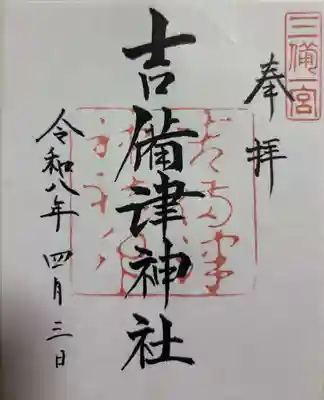 三備一宮
奉拝
吉備津神社
令和八年 四月三日